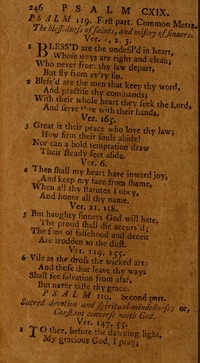 246 PSALM CXIX.
PSALM 119. First part. Common Metre.
The blessedness of saints, and misery of sinners.
Ver. 1, 2, 3.
1 BLESS'D are the undefil'd in heart,
Whose ways are right and clean;
Who never from thy law depart,
But fly from ev'ry sin.
2 Bless'd are the men that keep thy word,
And practise thy commands;
With their whole heart they seek the Lord,
And serve thee with their hands.
Ver. 165.
3 Great is their peace who love thy law;
How firm their souls abide!
Nor can a bold temptation draw
Their steady feet aside.
Ver. 6.
4 Then shall my heart have inward joy,
And keep my face from shame,
When all thy statutes I obey,
And honor all thy name.
Ver. 21, 118.
5 But haughty sinners God will hate,
The proud shall die accurs'd;
The sons of falsehood and deceit
Are trodden to the dust.
Ver. 119, 155.
6 Vile as the dross the wicked are:
And those that leave thy ways
Shall see salvation from afar,
But never taste thy grace.
PSALM 119. Second part.
Sacred devotion and spiritual-mindedness; or,
Constant converse with God.
Ver. 147, 55.
1 TO thee, before the dawning light,
My gracious God, I pray;